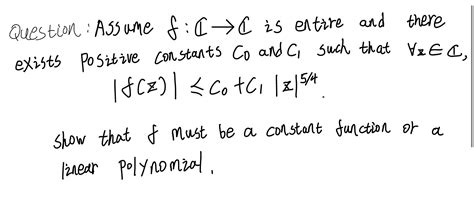 Question: Assume f: ℂ→ℂ is entire and there
exists positive constants C₀ and C₁ such that ∀z∈ℂ,
|f(z)| ≤ C₀ + C₁ |z|^{5/4}.
Show that f must be a constant function or a
linear polynomial.